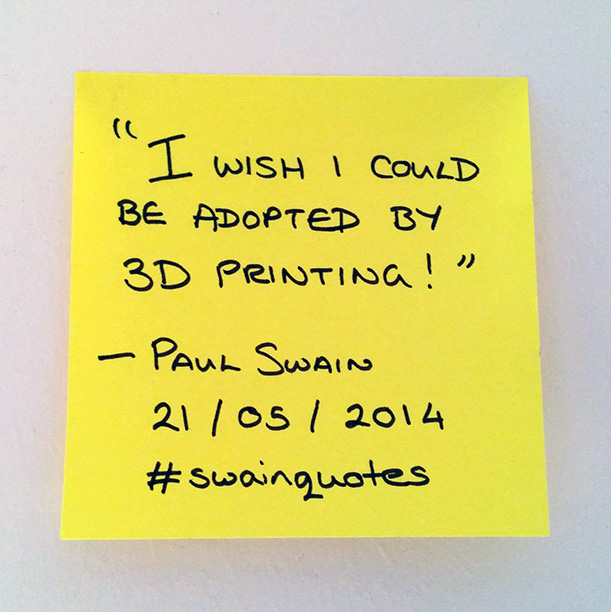 "I WISH I COULD
BE ADOPTED BY
3D PRINTING!"
— PAUL SWAIN
21/05/2014
#swainquotes